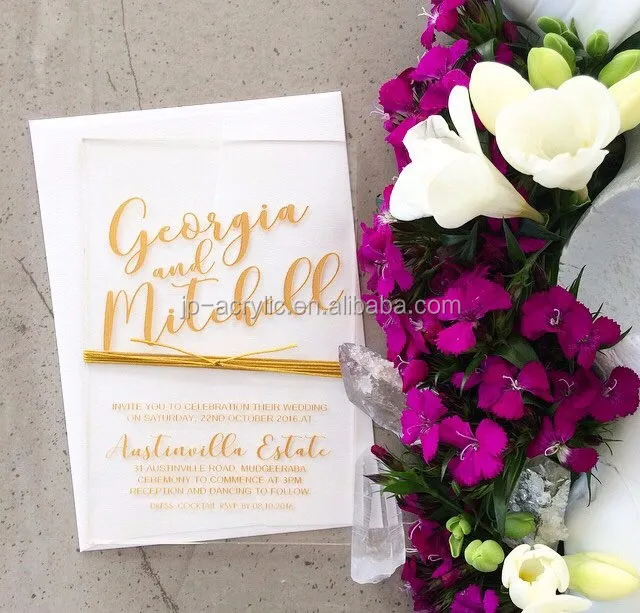 Georgia
and
Mitchell
jp-acrylic.en.alibaba.com
INVITE YOU TO CELEBRATION THEIR WEDDING
ON SATURDAY, 22ND OCTOBER 2016 AT
Austinvilla Estate
31 AUSTINVILLE ROAD, MUDGEERABA
CEREMONY TO COMMENCE AT 3PM
RECEPTION AND DANCING TO FOLLOW.
DRESS: COCKTAIL RSVP BY 08.10.2016